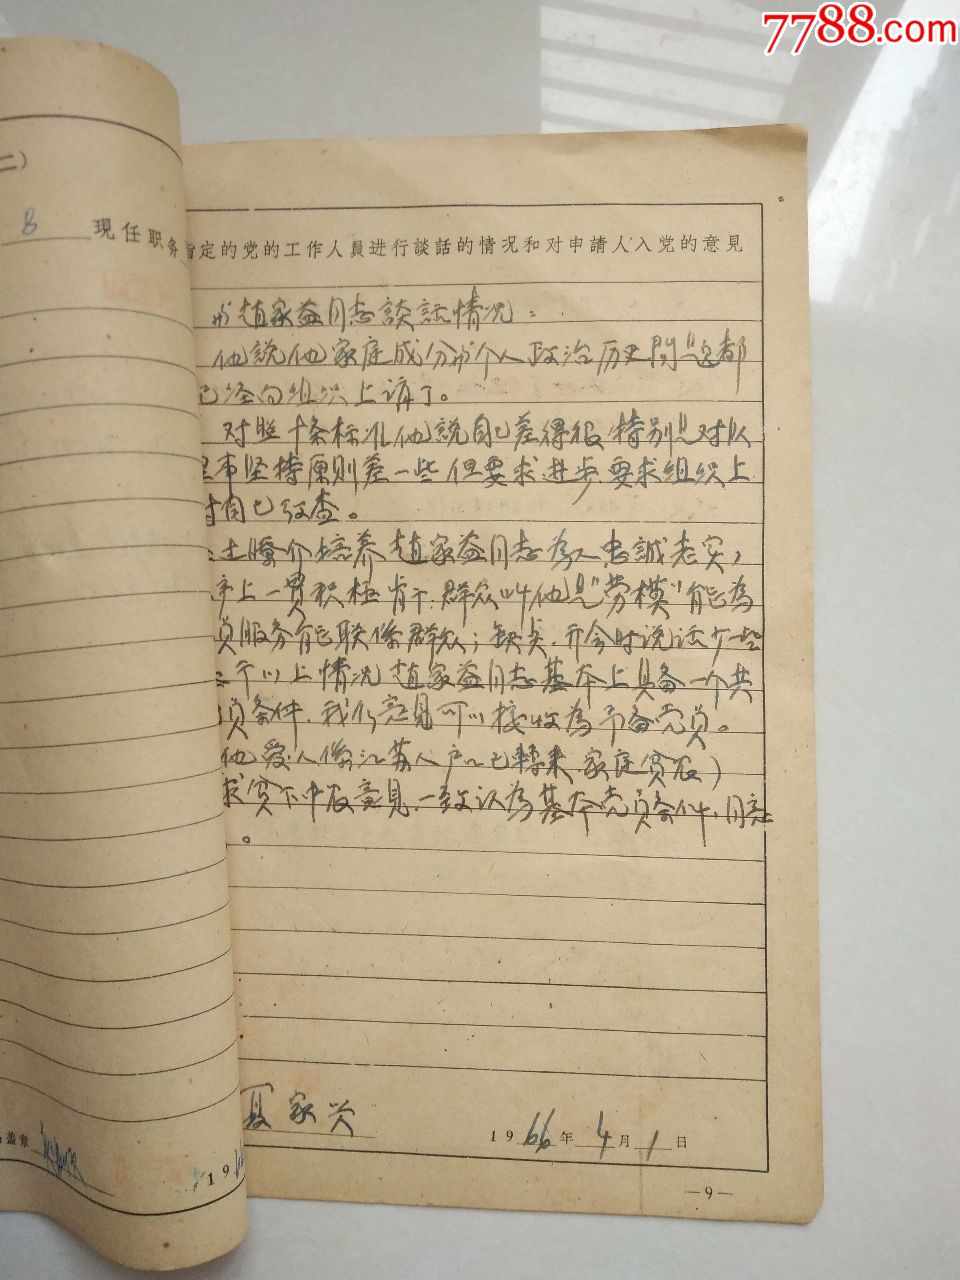 7788.com
二）
8 現任职务
指定的党的工作人員进行談話的情况和对申請人入党的意見
与赵家益同志談話情况：
他説他家庭成分与个人政治历史問題都
已经向组织上讲了。
对照十条标准他説自己差得很特别是对队
里事坚持原则差一些但要求进步要求组织上
对自己考查。
培养赵家益同志為人忠誠老实，
上一贯积极肯干，群众叫他是"劳模"能為
員服务能联係群众；缺点，开会时说话少一些
于以上情况赵家益同志基本上具备一个共
員条件，我们意见可以接收為予备党员。
他爱人係江苏人户口已轉来家庭贫农）
求贫下中农意見，一致认為基本党員条件，同意
。
夏家兴
1966年4月1日
盖章
19
—9—